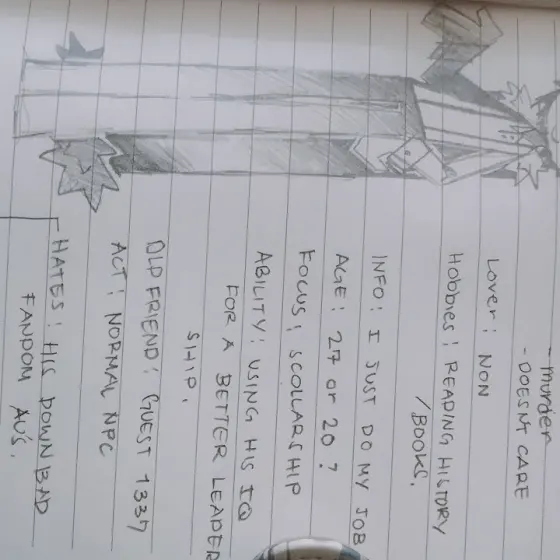 - murder
- DOESNT CARE
Lover : NON
Hobbies : READING HISTORY
/BOOKS.
INFO : I JUST DO MY JOB
AGE : 27 or 20 ?
FOCUS : SCOLLARSHIP
ABILITY : USING HIS IQ
FOR A BETTER LEADER
SHIP.
OLD FRIEND : GUEST 1337
ACT : NORMAL NPC
HATES : HIS DOWN BAD
FANDOM AU'S.